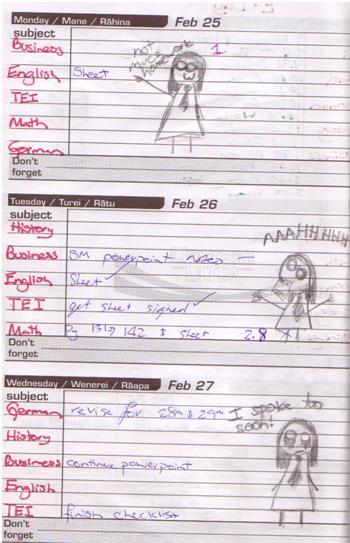 Monday / Mane / Rāhina Feb 25
subject
Business 1
not much homework
English Sheet
TEI
Math
German
Don't forget
Tuesday / Turei / Rātu Feb 26
subject
History
AAAHHHHH
Business SM powerpoint notes –
English Sheet ✓
TEI get sheet signed ✓
Math Pg 131, 142 & sheet 2.8
Don't forget
Wednesday / Wenerei / Rāapa Feb 27
subject
German revise for 28th & 29th
I spoke too soon!
History
Business continue powerpoint
English
TEI finish checklist
Don't forget